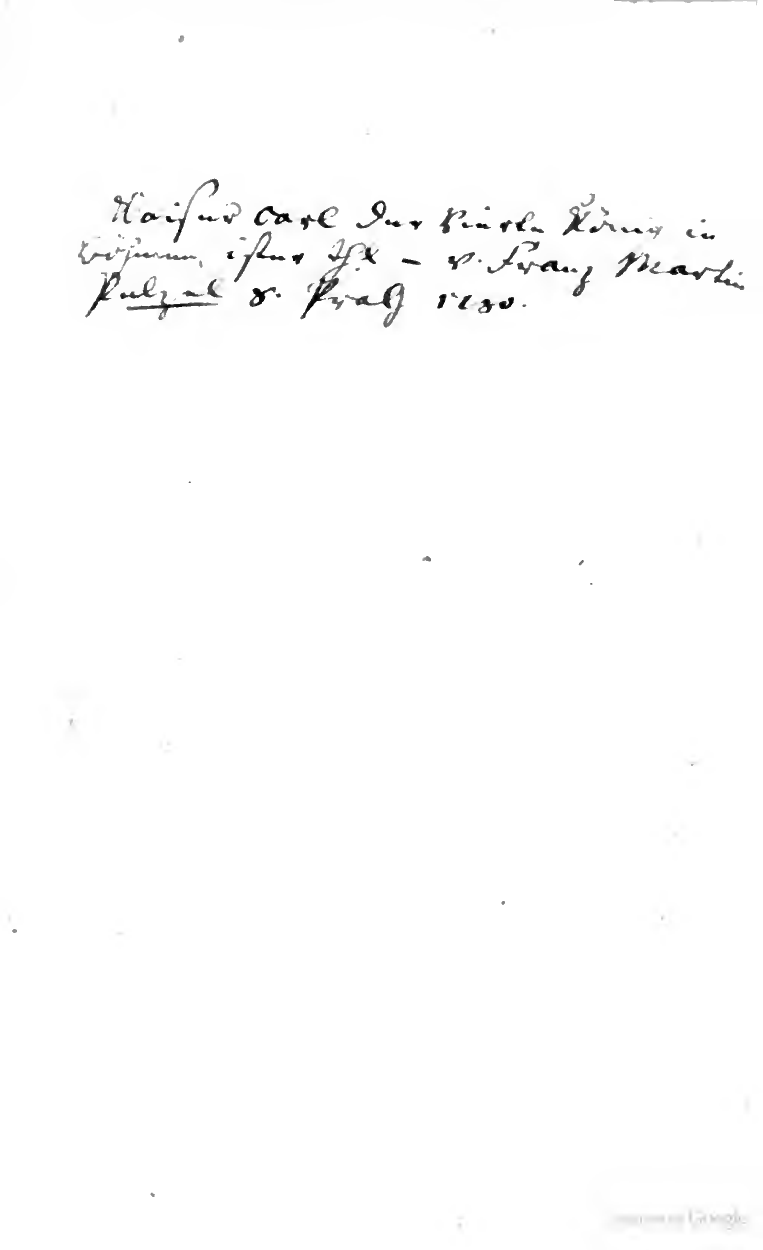 Kaiser Carl der Vierte König in
Böhmen, ister Th. – v. Franz Martin
Pelzel 8. Prag 1780.
Google